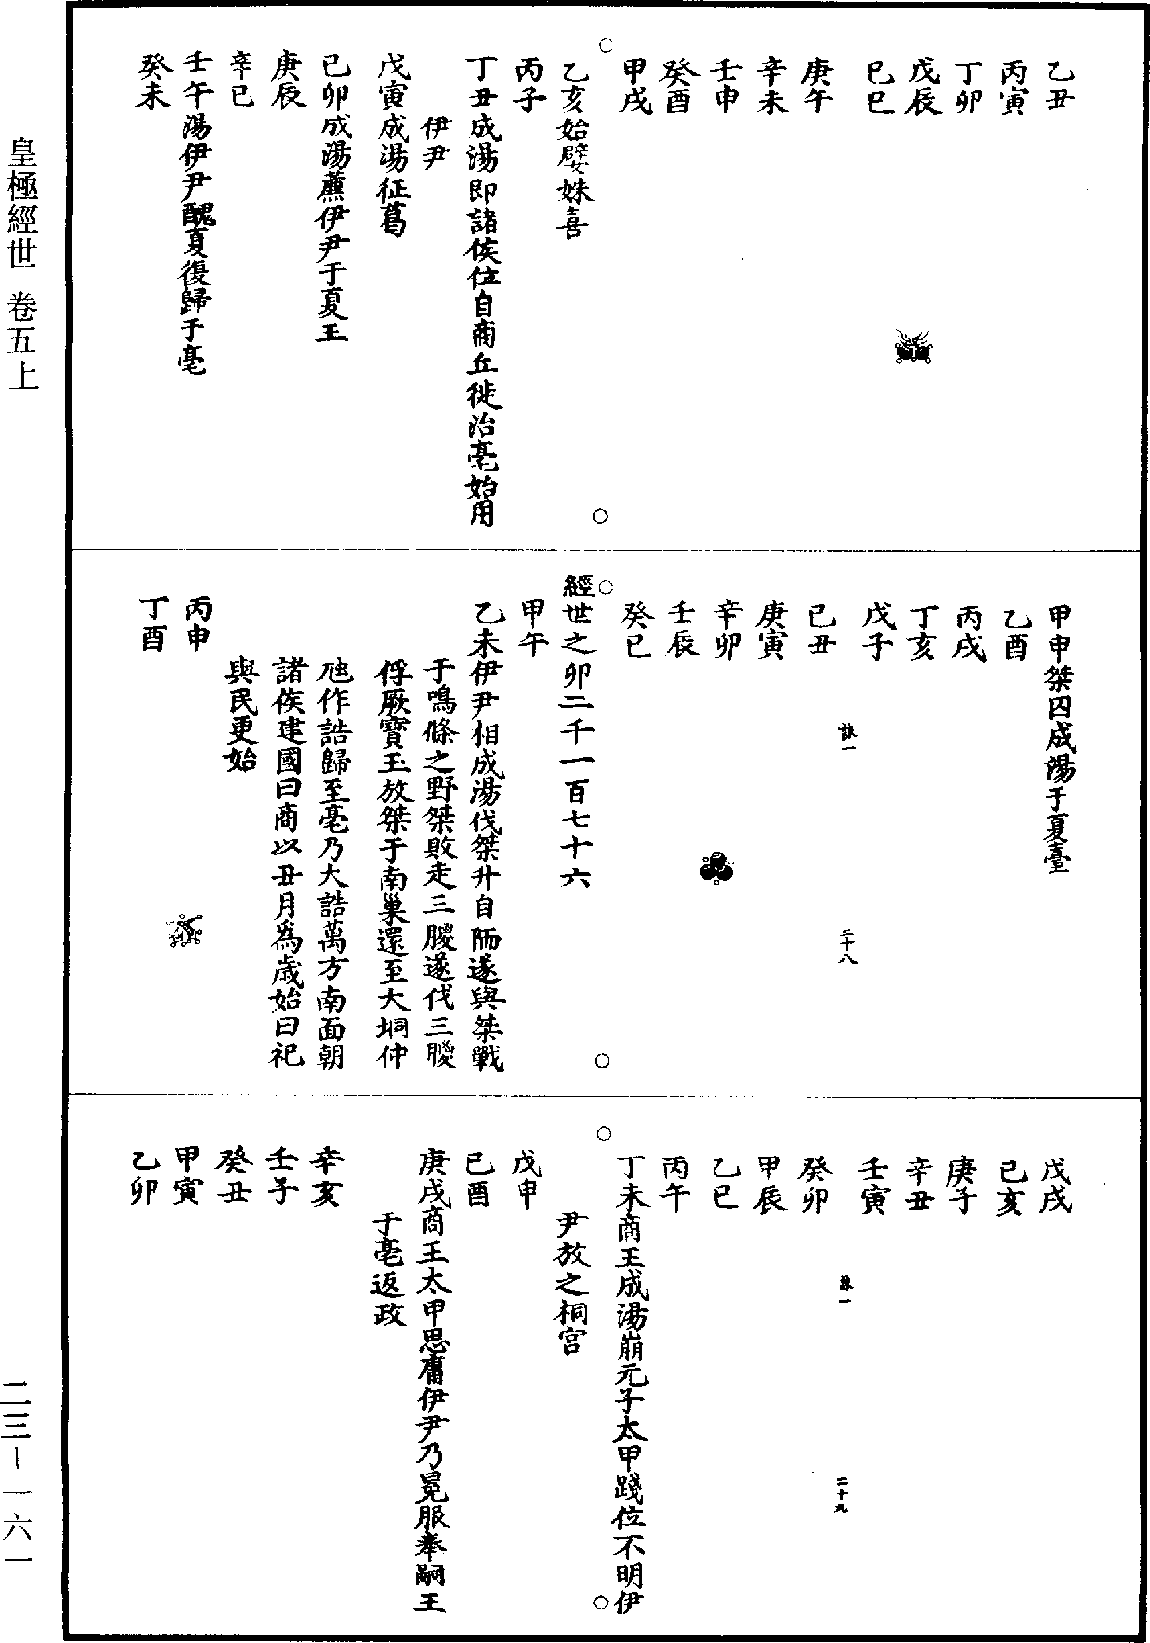 乙丑
丙寅
丁卯
戊辰
己巳
庚午
辛未
壬申
癸酉
甲戌
乙亥始嬖妹喜
丙子
丁丑成湯即諸侯位自商丘徙治亳始用
伊尹
戊寅成湯征葛
己卯成湯薦伊尹于夏王
庚辰
辛巳
壬午湯伊尹醜夏復歸于亳
癸未
甲申桀囚成湯于夏臺
乙酉
丙戌
丁亥
戊子
己丑
庚寅
辛卯
壬辰
癸巳
經世之卯二千一百七十六
甲午
乙未伊尹相成湯伐桀升自陑遂與桀戰
于鳴條之野桀敗走三朡遂伐三朡
俘厥寶玉放桀于南巢還至大坰仲
虺作誥歸至亳乃大誥萬方南面朝
諸侯建國曰商以丑月爲歲始曰祀
與民更始
丙申
丁酉
二十八
戊戌
己亥
庚子
辛丑
壬寅
癸卯
甲辰
乙巳
丙午
丁未商王成湯崩元子太甲踐位不明伊
尹放之桐宮
戊申
己酉
庚戌商王太甲思庸伊尹乃冕服奉嗣王
于亳返政
辛亥
壬子
癸丑
甲寅
乙卯
二十九
皇極經世 卷五上
二三－一六一